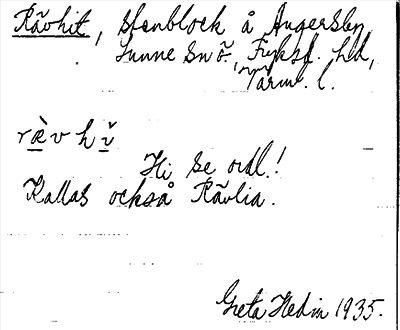 Rävhit, stenblock å Ångersby,
Sunne sn ö., Fryksd. hd,
Värml. l.
rævhi
Hi se ord!
Kallas också Rävlia.
Greta Hedin 1935.